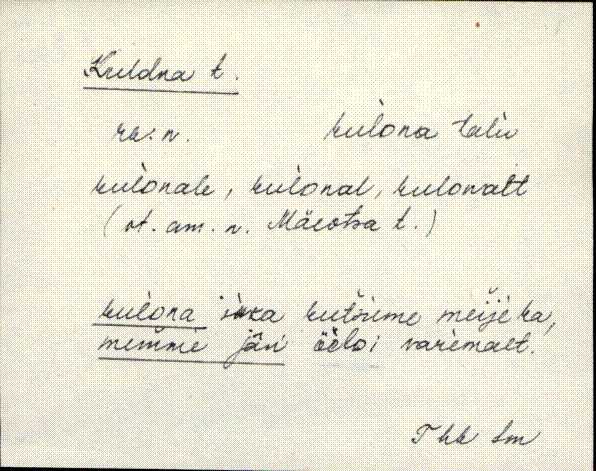 Kuldna t.
rk. n. kulona talu
kulonale, kulonal, kulonalt
(vt. am. n. Mäeotsa t.)
kulona kutsume meije ka,
memme jän varemalt.
Thk Sm